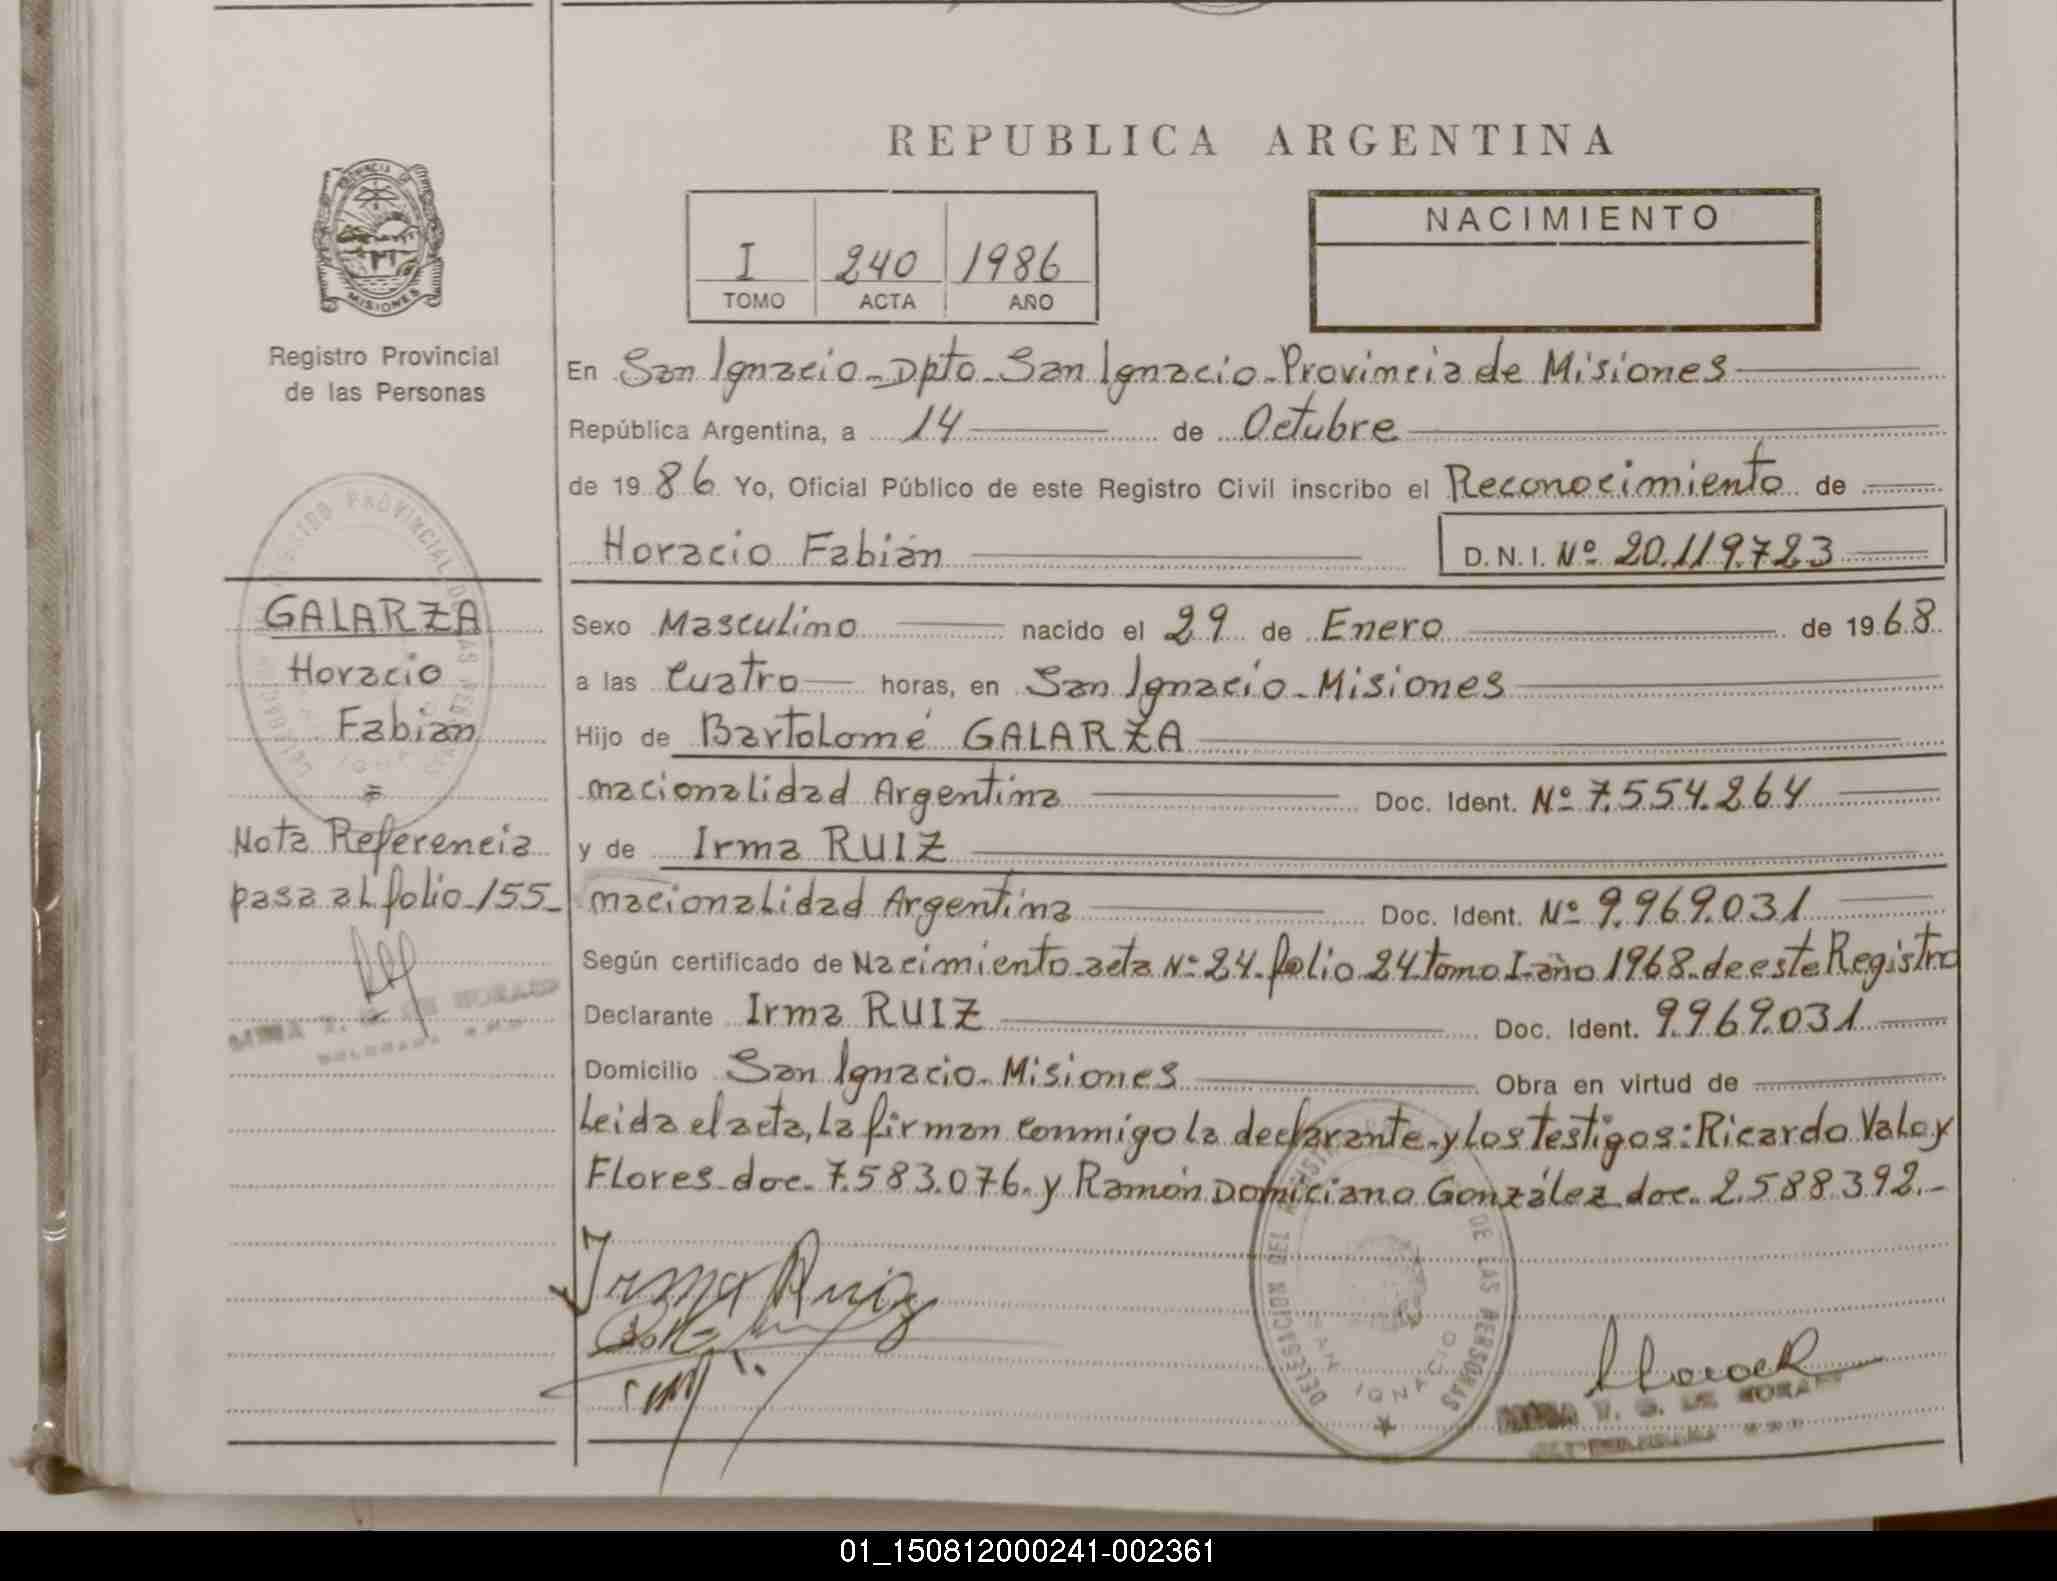 REPUBLICA ARGENTINA
PROVINCIA DE
MISIONES
Registro Provincial
de las Personas
I 240 1986
TOMO ACTA AÑO
NACIMIENTO
En San Ignacio - Dpto - San Ignacio - Provincia de Misiones
República Argentina, a 14 de Octubre
de 1986 Yo, Oficial Público de este Registro Civil inscribo el Reconocimiento de
Horacio Fabián D.N.I. Nº 20.119.723
GALARZA
Horacio
Fabián
=
Nota Referencia
pasa al folio 155-
Sexo Masculino nacido el 29 de Enero de 1968
a las Cuatro horas, en San Ignacio - Misiones
Hijo de Bartolomé GALARZA
nacionalidad Argentina Doc. Ident. Nº 7.554.264
y de Irma RUIZ
nacionalidad Argentina Doc. Ident. Nº 9.969.031
Según certificado de Nacimiento acta Nº 24 folio 24 tomo I año 1968 de este Registro
Declarante Irma RUIZ Doc. Ident. 9.969.031
Domicilio San Ignacio - Misiones Obra en virtud de
Leida el acta, la firman conmigo la declarante y los testigos: Ricardo Valoy
Flores doc. 7.583.076. y Ramón Domiciano González doc. 2.588.392.-
Irma Ruiz
DELEGACION DEL REGISTRO DE LAS PERSONAS
SAN IGNACIO
V. G. DE MORAES
01_150812000241-002361